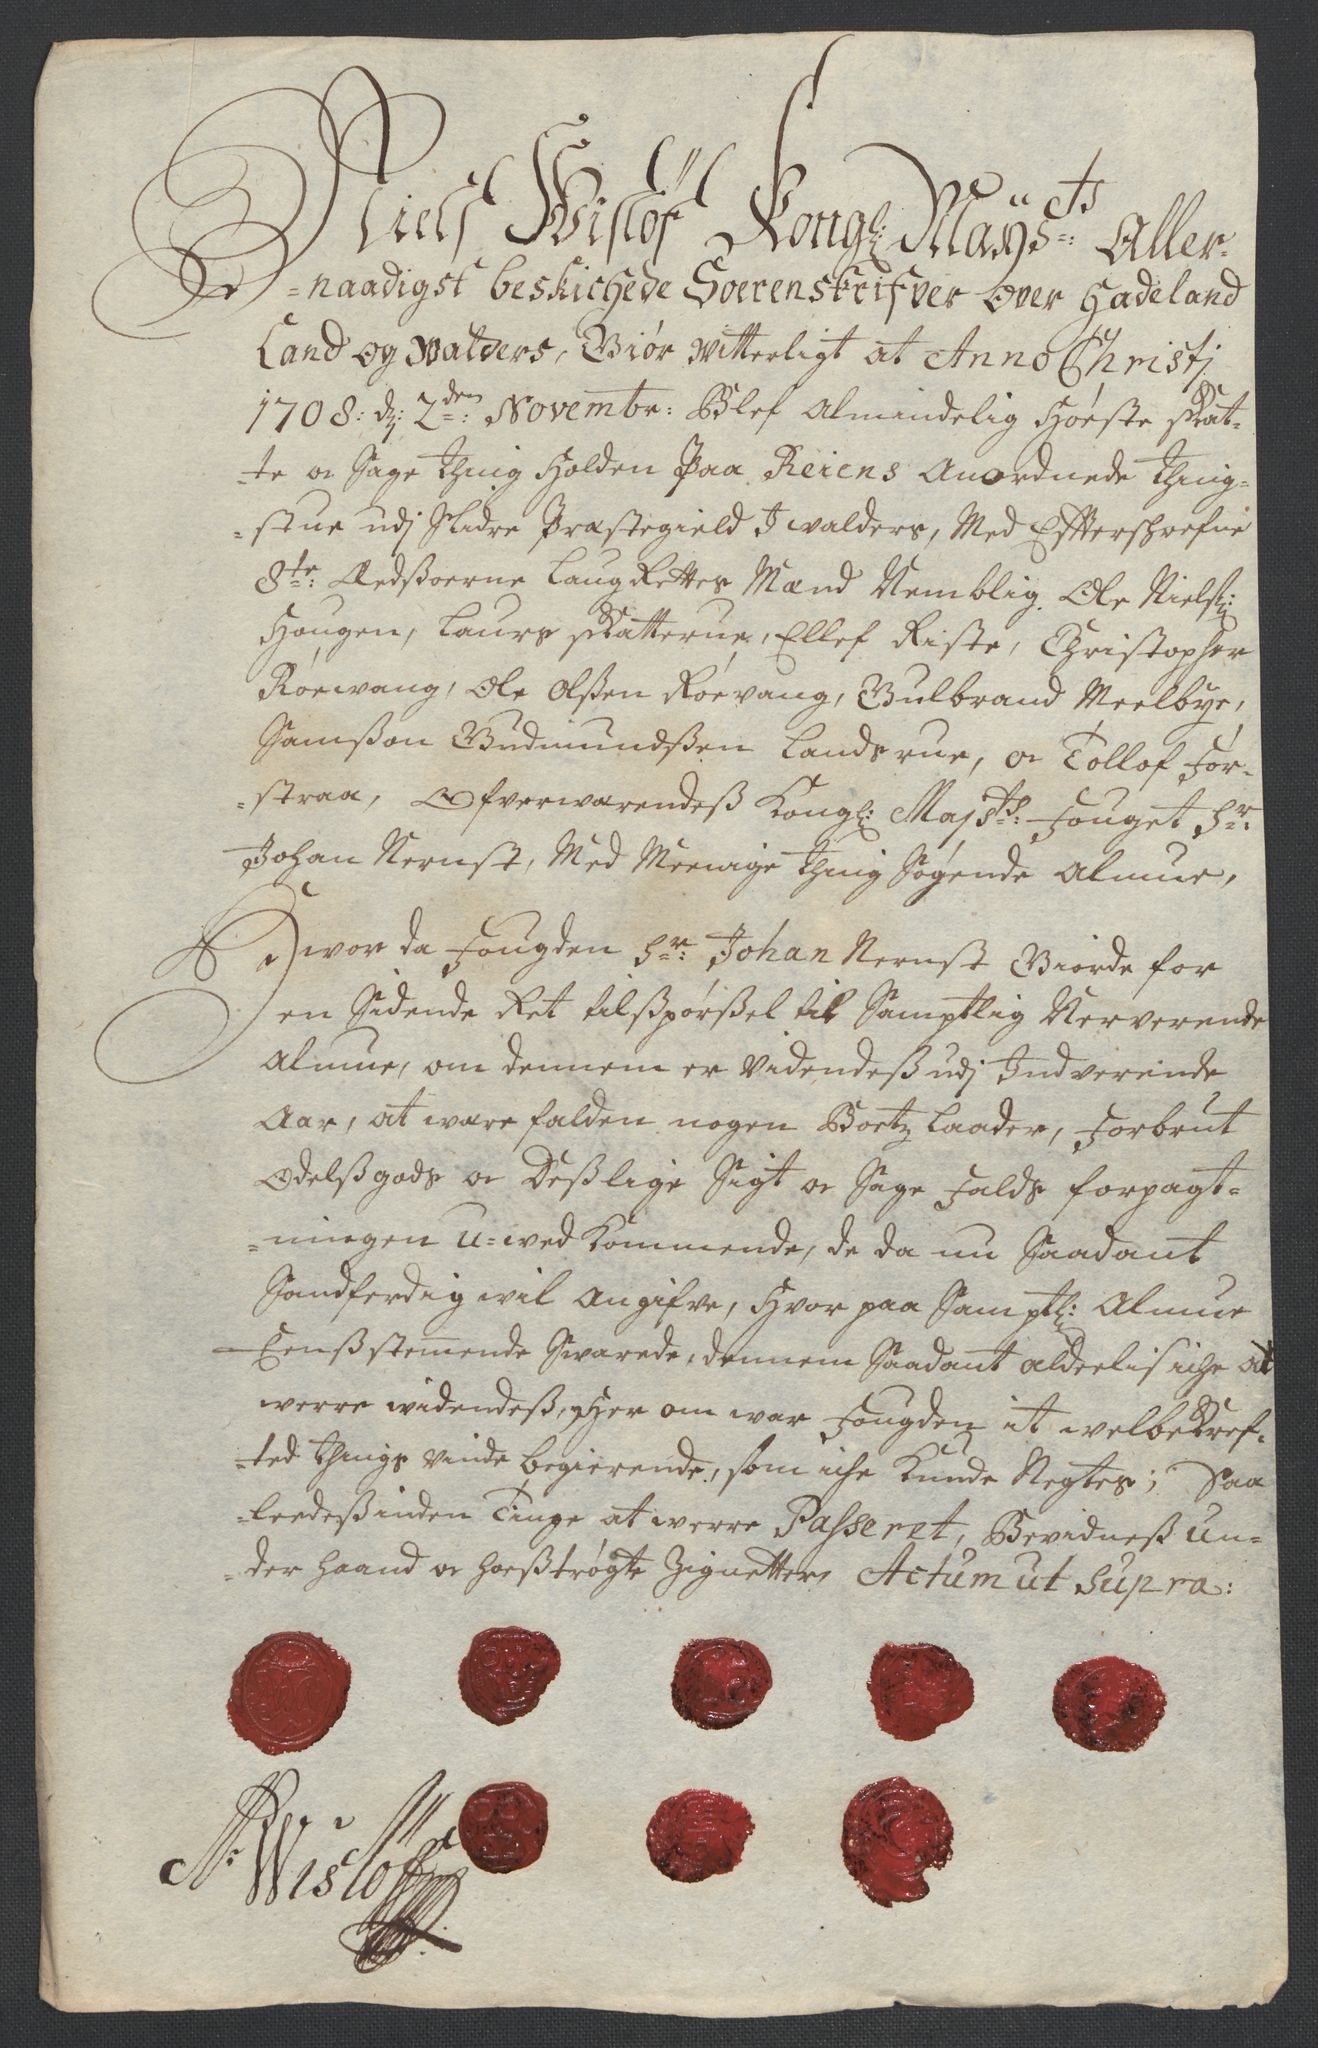 Niels Wislöf Kongl: Maÿsts: Aller-
=naadigst beskichede Soerenskrifver over Hadeland
Land og Walders, Giør witterligt at Anno Christj
1708: dn: 2den: Novembr: Blef Almindelig Høeste skat-
=te oc Sage thing Holden Paa Reiens Anordnede thing=
=stue udj Slidre Præstegield J walders, Med Effterschrefne
8te: Aedssoerne LaugRettes Mænd Nemblig. Ole Nielss:
Hougen, Laurs skatterue, Ellef Riste, Christopher
Røewang, Ole Olssen Røevang, Gulbrand Meelbye,
Samsson Gudmundssen Landsrue, oc Tollof For-
=straa, Ofverwærendess Kongl: Majsts: Fouget Hr:
Johan Nernst, Med Meenige thing Søgende Almue,
Hwor da Fougden Hr: Johan Nernst Giorde for
en Sidende Ret tilsspørssel til Samptlig Nerverende
Almue, om dennem er Videndess udj Indverende
Aar, at være falden nogen Boetz laader, Forbrut
Odelssgods oc Desslige Sigt oc Sage Falds forpagt=
=ningen u=wed Kommende, de da nu Saadant
Sandferdig wil Angifve, Hvor paa Samptl: Almue
Eenssstemmende Swarede, dennem Saadant aldeelis iche at
werre widendess, Her om war Fougden it welbekref-
=ted things vinde begierende, som iche Kunde Negtes; Saa
=leedess inden Tinge at werre Passeret, Bevidness un=
=der haand oc hoesstrøgte Zignetter, Actum ut supra:
N: Wislöff